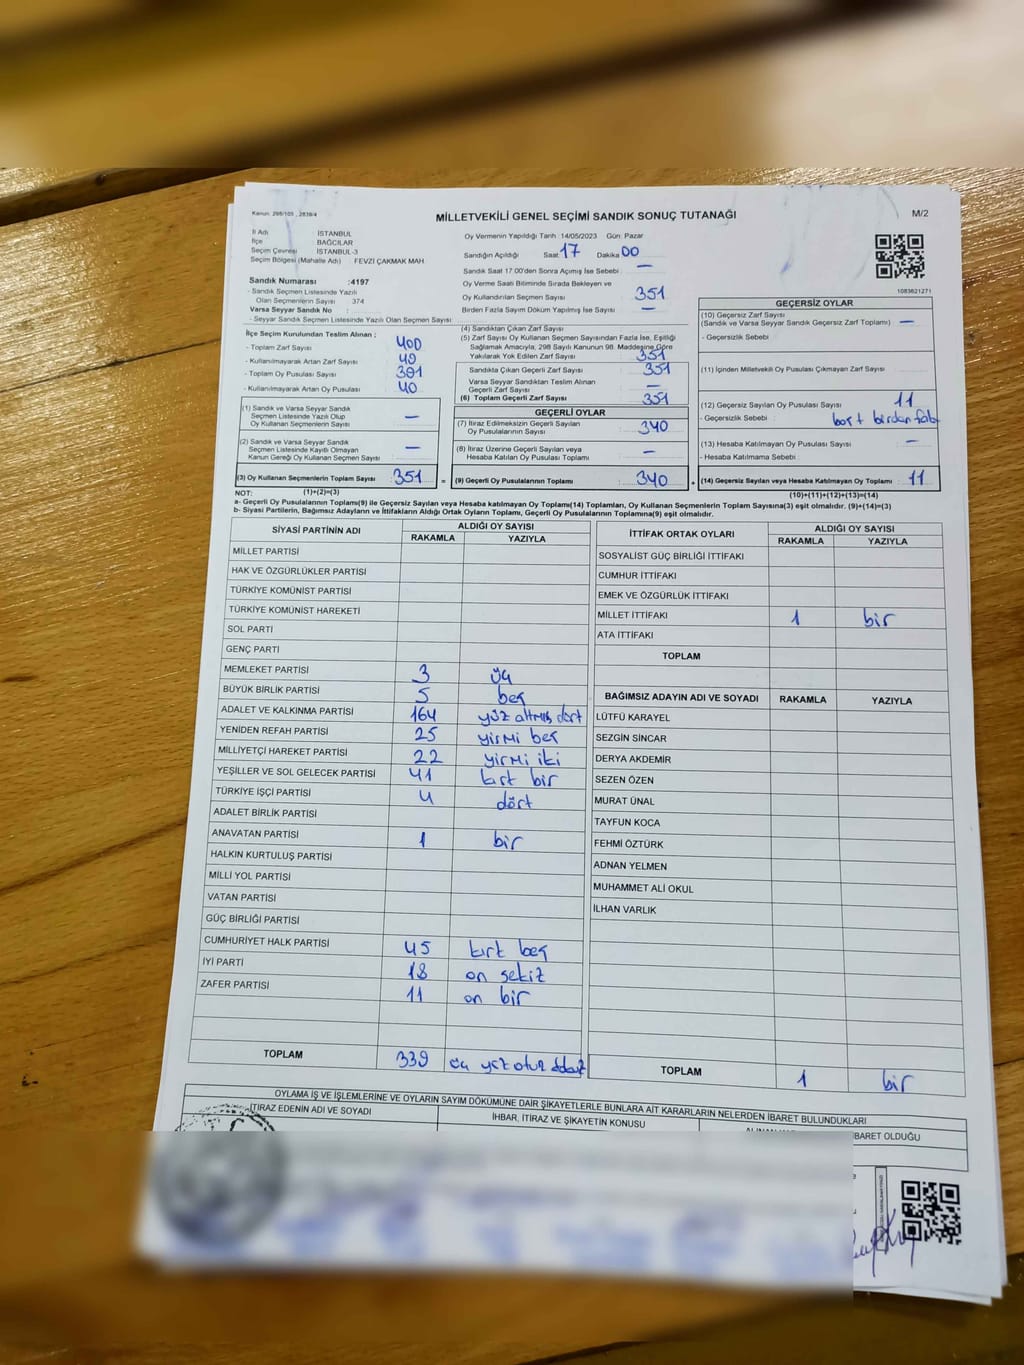 Kanun: 298/105 , 2839/4
MİLLETVEKİLİ GENEL SEÇİMİ SANDIK SONUÇ TUTANAĞI
M/2
İl Adı : İSTANBUL
İlçe : BAĞCILAR
Seçim Çevresi : İSTANBUL-3
Seçim Bölgesi (Mahalle Adı) : FEVZİ ÇAKMAK MAH.
Sandık Numarası : 4197
- Sandık Seçmen Listesinde Yazılı
Olan Seçmenlerin Sayısı : 374
Varsa Seyyar Sandık No :
- Seyyar Sandık Seçmen Listesinde Yazılı Olan Seçmen Sayısı :
Oy Vermenin Yapıldığı Tarih :14/05/2023 Gün: Pazar
Sandığın Açıldığı Saat 17 Dakika 00
Sandık Saat 17:00'den Sonra Açılmış İse Sebebi : —
Oy Verme Saati Bitiminde Sırada Bekleyen ve
Oy Kullandırılan Seçmen Sayısı : 351
Birden Fazla Sayım Döküm Yapılmış İse Sayısı : —
1083621271
İlçe Seçim Kurulundan Teslim Alınan ;
- Toplam Zarf Sayısı : 400
- Kullanılmayarak Artan Zarf Sayısı : 49
- Toplam Oy Pusulası Sayısı : 391
- Kullanılmayarak Artan Oy Pusulası : 40
(1) Sandık ve Varsa Seyyar Sandık
Seçmen Listesinde Yazılı Olup
Oy Kullanan Seçmenlerin Sayısı : —
(2) Sandık ve Varsa Seyyar Sandık
Seçmen Listesinde Kayıtlı Olmayan
Kanun Gereği Oy Kullanan Seçmen Sayısı : —
(3) Oy Kullanan Seçmenlerin Toplam Sayısı : 351 =
(1)+(2)=(3)
(4) Sandıktan Çıkan Zarf Sayısı :
(5) Zarf Sayısı Oy Kullanan Seçmen Sayısından Fazla İse, Eşitliği
Sağlamak Amacıyla, 298 Sayılı Kanunun 98. Maddesine Göre
Yakılarak Yok Edilen Zarf Sayısı : 351
Sandıkta Çıkan Geçerli Zarf Sayısı : 351
Varsa Seyyar Sandıktan Teslim Alınan
Geçerli Zarf Sayısı : —
(6) Toplam Geçerli Zarf Sayısı : 351
GEÇERLİ OYLAR
(7) İtiraz Edilmeksizin Geçerli Sayılan
Oy Pusulalarının Sayısı : 340
(8) İtiraz Üzerine Geçerli Sayılan veya
Hesaba Katılan Oy Pusulası Toplamı : —
(9) Geçerli Oy Pusulalarının Toplamı : 340 +
GEÇERSİZ OYLAR
(10) Geçersiz Zarf Sayısı
(Sandık ve Varsa Seyyar Sandık Geçersiz Zarf Toplamı) : —
- Geçersizlik Sebebi :
(11) İçinden Milletvekili Oy Pusulası Çıkmayan Zarf Sayısı :
(12) Geçersiz Sayılan Oy Pusulası Sayısı : 11
- Geçersizlik Sebebi : boş+ birdan fab
(13) Hesaba Katılmayan Oy Pusulası Sayısı : —
- Hesaba Katılmama Sebebi :
(14) Geçersiz Sayılan veya Hesaba Katılmayan Oy Toplamı : 11
(10)+(11)+(12)+(13)=(14)
NOT:
a- Geçerli Oy Pusulalarının Toplamı(9) ile Geçersiz Sayılan veya Hesaba katılmayan Oy Toplamı(14) Toplamları, Oy Kullanan Seçmenlerin Toplam Sayısına(3) eşit olmalıdır. (9)+(14)=(3)
b- Siyasi Partilerin, Bağımsız Adayların ve İttifakların Aldığı Ortak Oyların Toplamı, Geçerli Oy Pusulalarının Toplamına(9) eşit olmalıdır.
SİYASİ PARTİNİN ADI ALDIĞI OY SAYISI
RAKAMLA YAZIYLA
MİLLET PARTİSİ
HAK VE ÖZGÜRLÜKLER PARTİSİ
TÜRKİYE KOMÜNİST PARTİSİ
TÜRKİYE KOMÜNİST HAREKETİ
SOL PARTİ
GENÇ PARTİ
MEMLEKET PARTİSİ 3 üç
BÜYÜK BİRLİK PARTİSİ 5 beş
ADALET VE KALKINMA PARTİSİ 164 yüz altmış dört
YENİDEN REFAH PARTİSİ 25 yirmi beş
MİLLİYETÇİ HAREKET PARTİSİ 22 yirmi iki
YEŞİLLER VE SOL GELECEK PARTİSİ 41 kırt bir
TÜRKİYE İŞÇİ PARTİSİ 4 dört
ADALET BİRLİK PARTİSİ
ANAVATAN PARTİSİ 1 bir
HALKIN KURTULUŞ PARTİSİ
MİLLİ YOL PARTİSİ
VATAN PARTİSİ
GÜÇ BİRLİĞİ PARTİSİ
CUMHURİYET HALK PARTİSİ 45 kırt beş
İYİ PARTİ 18 on sekiz
ZAFER PARTİSİ 11 on bir
TOPLAM 339 üç yüz otuz
İTTİFAK ORTAK OYLARI ALDIĞI OY SAYISI
RAKAMLA YAZIYLA
SOSYALİST GÜÇ BİRLİĞİ İTTİFAKI
CUMHUR İTTİFAKI
EMEK VE ÖZGÜRLÜK İTTİFAKI
MİLLET İTTİFAKI 1 bir
ATA İTTİFAKI
TOPLAM
BAĞIMSIZ ADAYIN ADI VE SOYADI RAKAMLA YAZIYLA
LÜTFÜ KARAYEL
SEZGİN SİNCAR
DERYA AKDEMİR
SEZEN ÖZEN
MURAT ÜNAL
TAYFUN KOCA
FEHMİ ÖZTÜRK
ADNAN YELMEN
MUHAMMET ALİ OKUL
İLHAN VARLIK
TOPLAM 1 bir
OYLAMA İŞ VE İŞLEMLERİNE VE OYLARIN SAYIM DÖKÜMÜNE DAİR ŞİKAYETLERLE BUNLARA AİT KARARLARIN NELERDEN İBARET BULUNDUKLARI
İTİRAZ EDENİN ADI VE SOYADI
İHBAR, İTİRAZ VE ŞİKAYETİN KONUSU
İBARET OLDUĞU